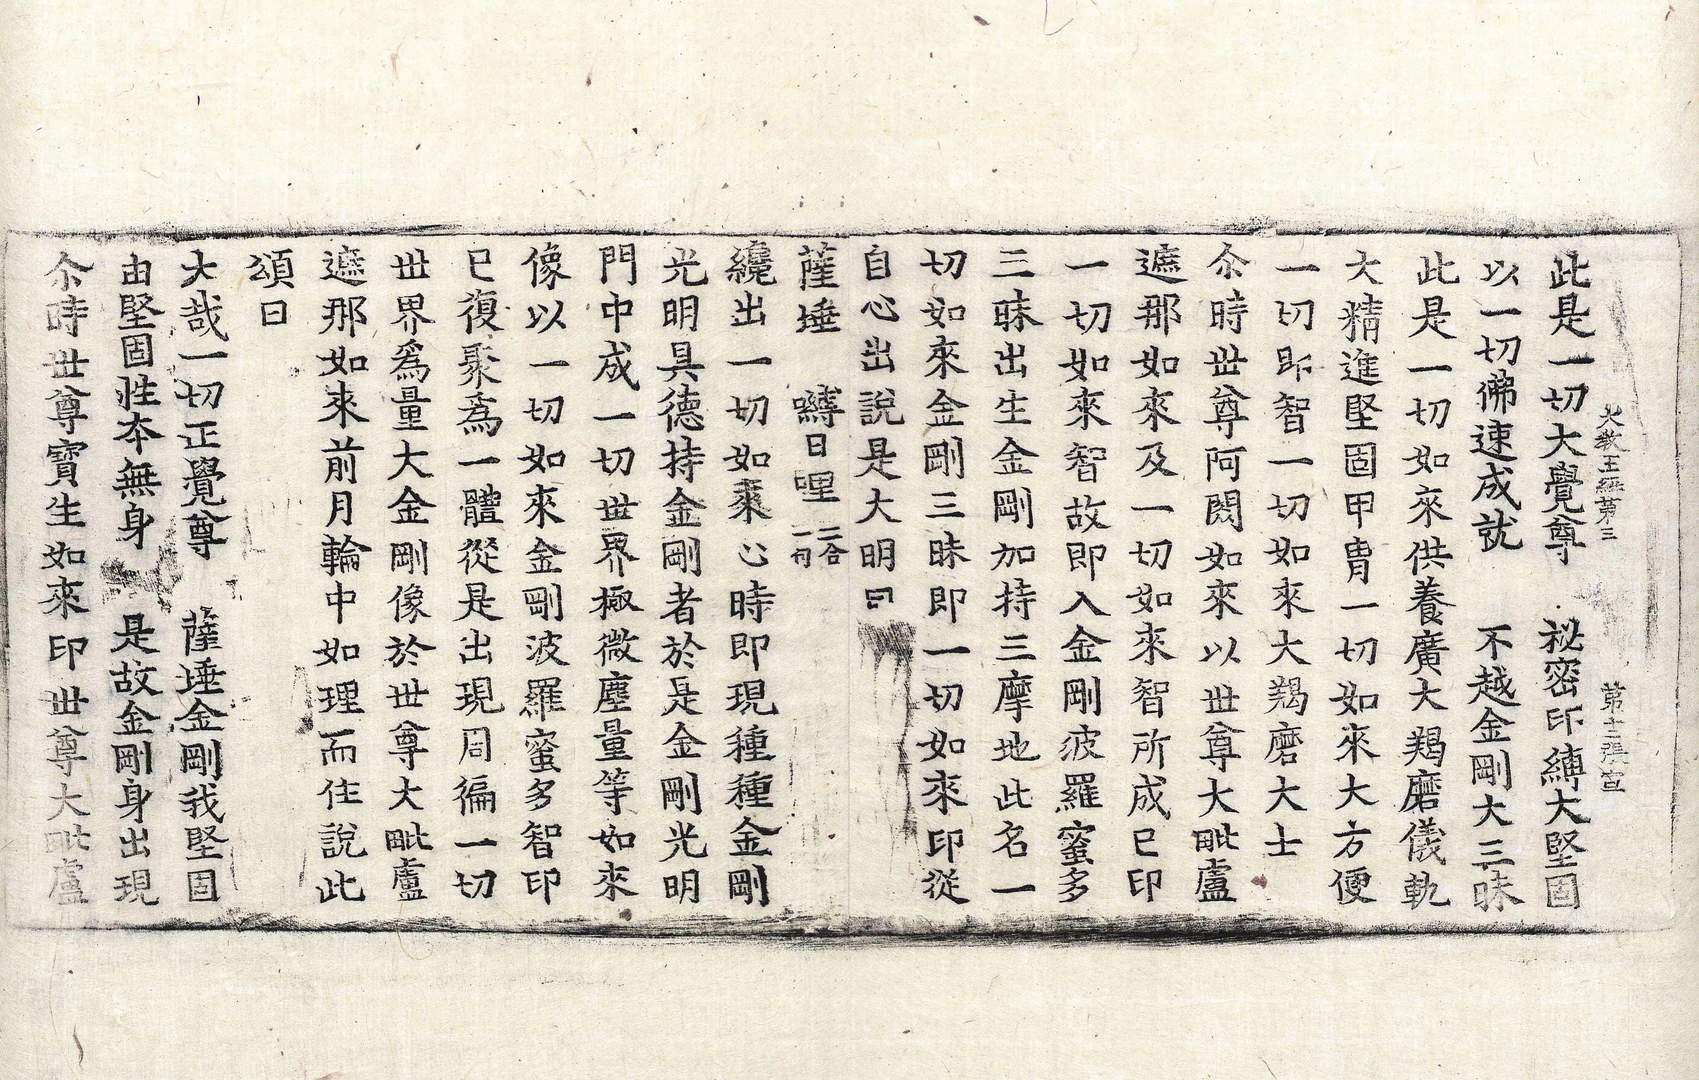 大教王經第三　第十二張宣
此是一切大覺尊　祕密印縛大堅固
以一切佛速成就　不越金剛大三昧
此是一切如來供養廣大羯磨儀軌
大精進堅固甲冑一切如來大方便
一切印智一切如來大羯磨大士
尒時世尊阿閦如來以世尊大毗盧
遮那如來及一切如來智所成已印
一切如來智故即入金剛波羅蜜多
三昧出生金剛加持三摩地此名一
切如來金剛三昧即一切如來印從
自心出說是大明曰
薩埵　嚩日哩二合一句
纔出一切如來心時即現種種金剛
光明具德持金剛者於是金剛光明
門中成一切世界極微塵量等如來
像以一切如來金剛波羅蜜多智印
已復聚為一體從是出現周徧一切
世界為量大金剛像於世尊大毗盧
遮那如來前月輪中如理而住說此
頌曰
大哉一切正覺尊　薩埵金剛我堅固
由堅固性本無身　是故金剛身出現
尒時世尊寶生如來印世尊大毗盧